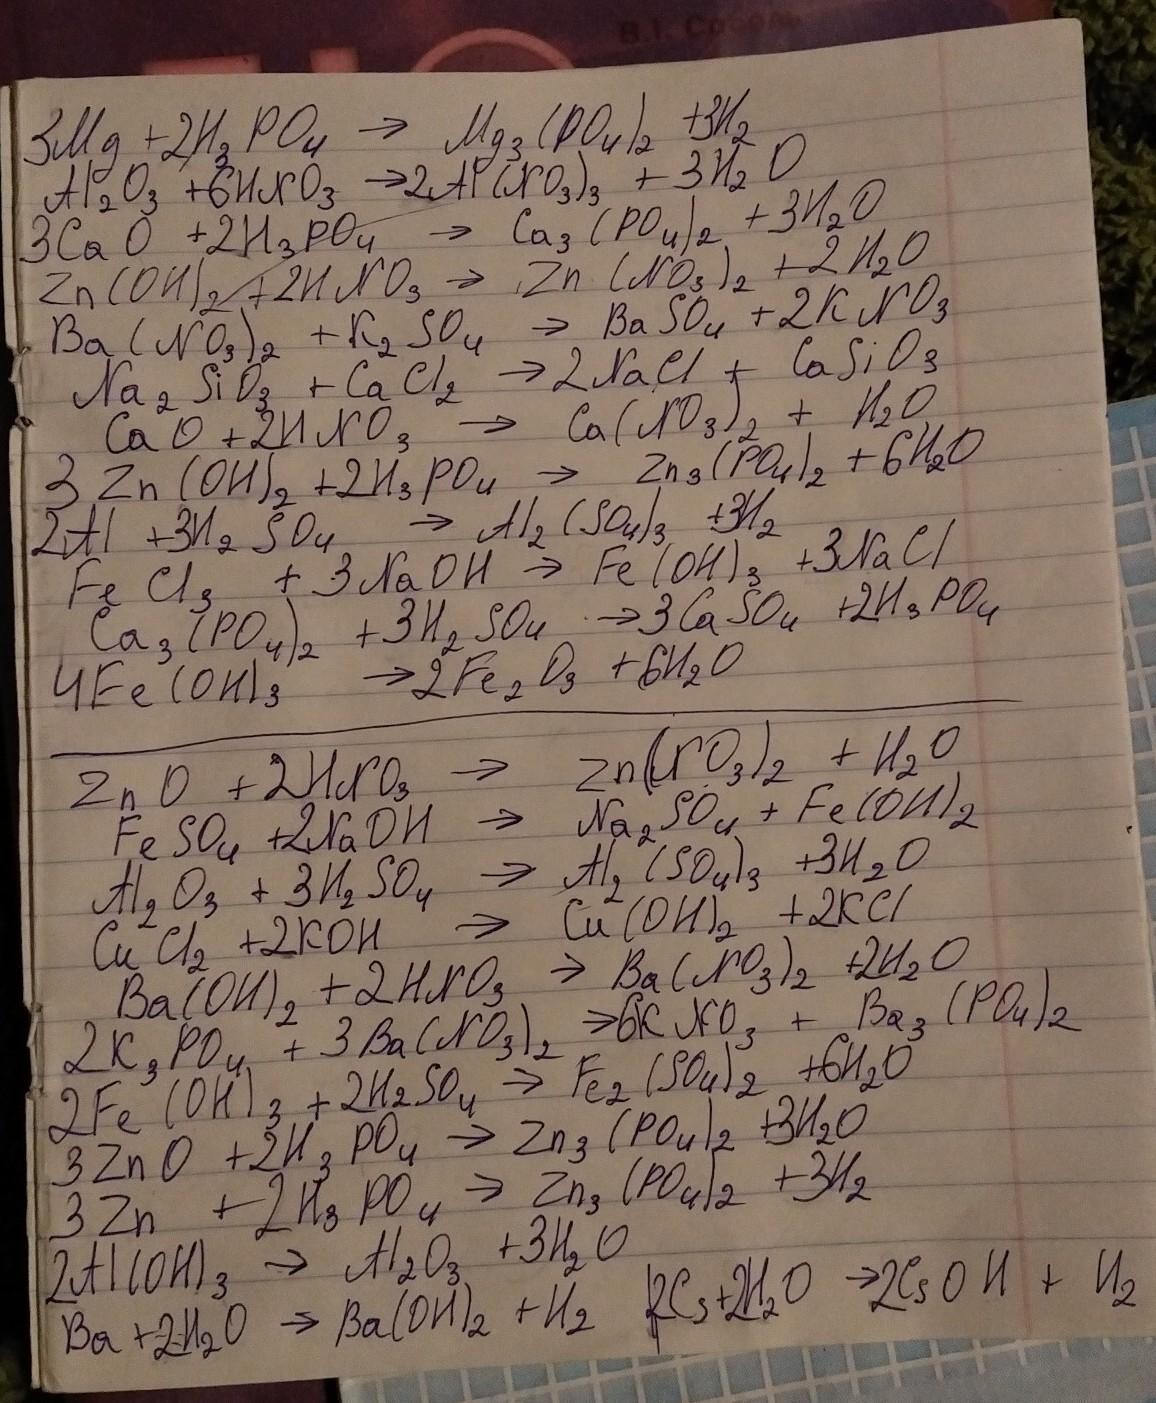 В.І. Соболь
3Mg + 2H₃PO₄ → Mg₃(PO₄)₂ + 3H₂
Al₂O₃ + 6HNO₃ → 2Al(NO₃)₃ + 3H₂O
3CaO + 2H₃PO₄ → Ca₃(PO₄)₂ + 3H₂O
Zn(OH)₂ + 2HNO₃ → Zn(NO₃)₂ + 2H₂O
Ba(NO₃)₂ + K₂SO₄ → BaSO₄ + 2KNO₃
Na₂SiO₃ + CaCl₂ → 2NaCl + CaSiO₃
CaO + 2HNO₃ → Ca(NO₃)₂ + H₂O
3Zn(OH)₂ + 2H₃PO₄ → Zn₃(PO₄)₂ + 6H₂O
2Al + 3H₂SO₄ → Al₂(SO₄)₃ + 3H₂
FeCl₃ + 3NaOH → Fe(OH)₃ + 3NaCl
Ca₃(PO₄)₂ + 3H₂SO₄ → 3CaSO₄ + 2H₃PO₄
4Fe(OH)₃ → 2Fe₂O₃ + 6H₂O
ZnO + 2HNO₃ → Zn(NO₃)₂ + H₂O
FeSO₄ + 2NaOH → Na₂SO₄ + Fe(OH)₂
Al₂O₃ + 3H₂SO₄ → Al₂(SO₄)₃ + 3H₂O
CuCl₂ + 2KOH → Cu(OH)₂ + 2KCl
Ba(OH)₂ + 2HNO₃ → Ba(NO₃)₂ + 2H₂O
2K₃PO₄ + 3Ba(NO₃)₂ → 6KNO₃ + Ba₃(PO₄)₂
2Fe(OH)₃ + 2H₂SO₄ → Fe₂(SO₄)₂ + 6H₂O
3ZnO + 2H₃PO₄ → Zn₃(PO₄)₂ + 3H₂O
3Zn + 2H₃PO₄ → Zn₃(PO₄)₂ + 3H₂
2Al(OH)₃ → Al₂O₃ + 3H₂O
Ba + 2H₂O → Ba(OH)₂ + H₂ | 2Cs + 2H₂O → 2CsOH + H₂